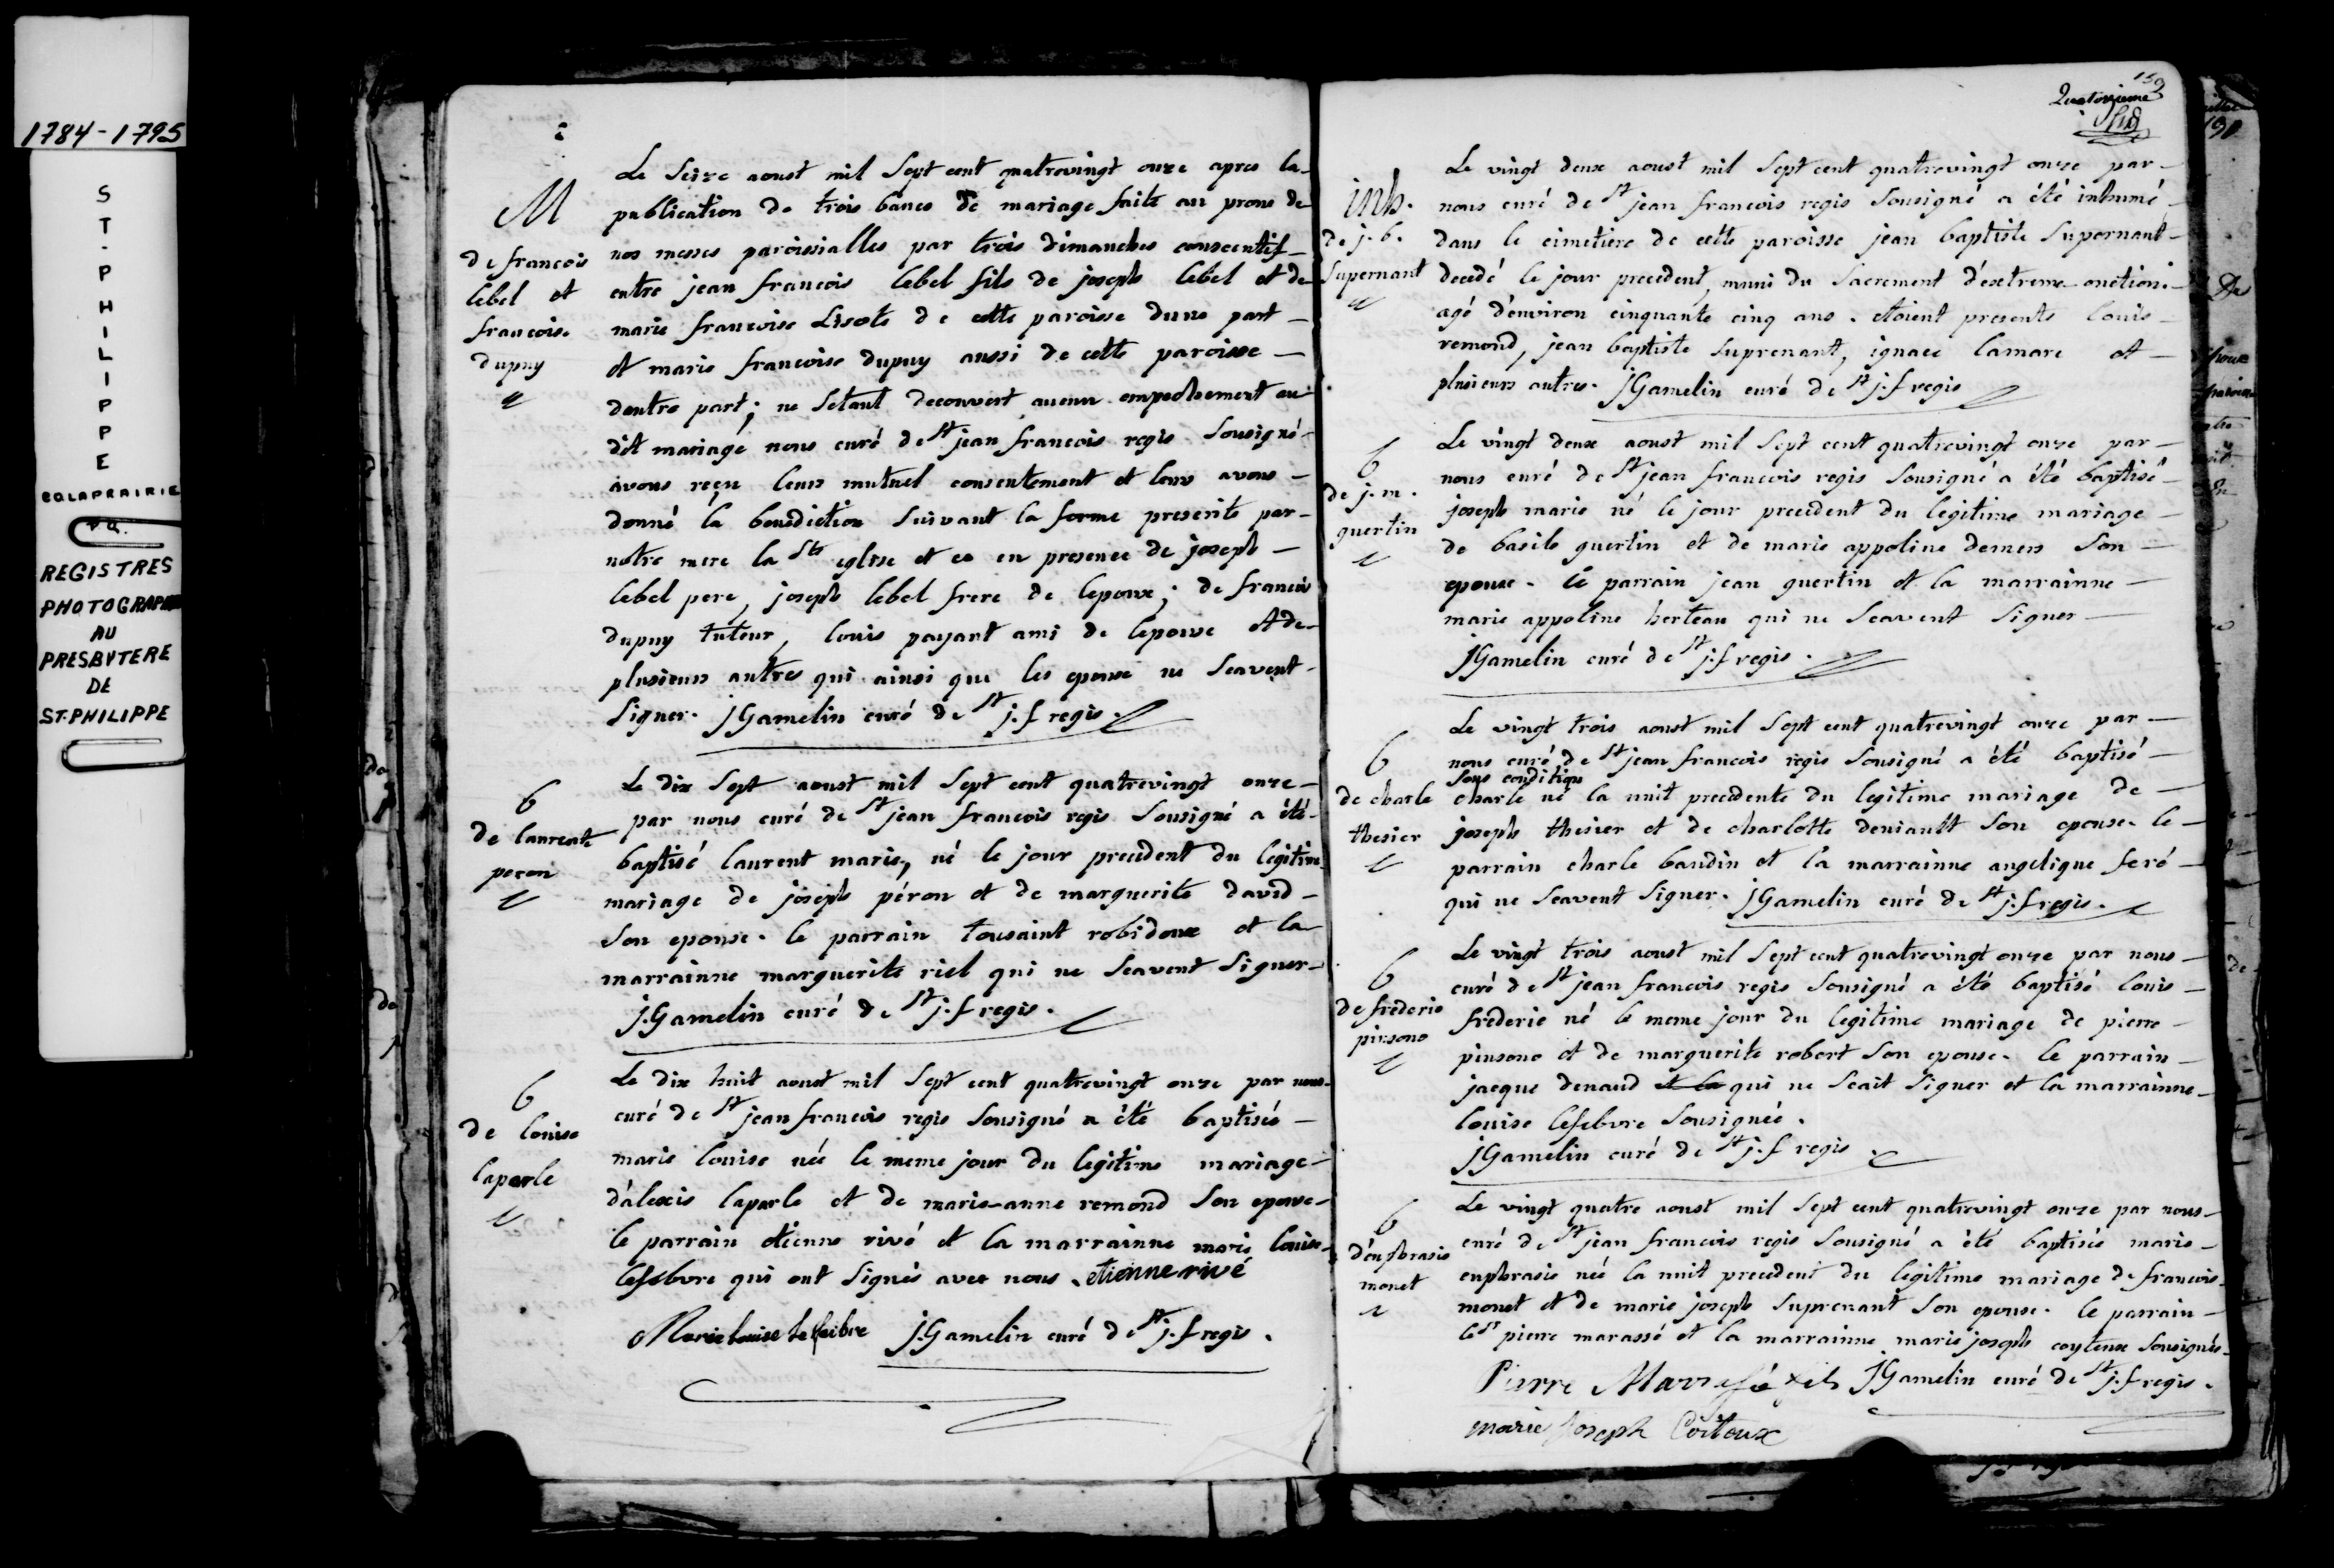 1784-1795
ST-PHILIPPE
CO LAPRAIRIE
P.Q.
REGISTRES
PHOTOGRAPHIÉ
AU
PRESBYTERE
DE
ST-PHILIPPE
M
de francois
lebel et
francoise
dupuy
Le Seize aoust mil Sept cent quatrevingt onze apres la
publication de trois bancs de mariage faite au prone de
nos messes paroissialles par trois dimanches consecutif
entre jean francois lebel fils de joseph lebel et de
marie francoise Lisote de cette paroisse dune part
et marie francoise dupuy aussi de cette paroisse
dautre part; ne Setant decouvert aucun empechement au
dit mariage nous curé de St jean francois regis Sousigné
avons reçu leurs mutuel consentement et leur avons
donné la benediction Suivant la forme prescrite par
notre mere la Ste eglise et ce en presence de joseph
lebel pere, joseph lebel frere de lepoux; de francois
dupuy tuteur, louis payant ami de lepouse et de
plusieurs autres qui ainsi que les epoux ne Scavent
Signer. JGamelin curé de St j.f regis.
b
de laurent
peron
Le dix Sept aoust mil Sept cent quatrevingt onze
par nous curé de St jean francois regis Sousigné a été
baptisé laurent marie, né le jour precedent du legitime
mariage de joseph péron et de marguerite david
Son epouse. le parrain tousaint robidoux et la
marrainne marguerite riel qui ne Scavent Signer
J.Gamelin curé de St j.f regis.
b
de louise
laperle
Le dix huit aoust mil Sept cent quatrevingt onze par nous
curé de St jean francois regis Sousigné a été baptisée
marie louise née le meme jour du legitime mariage
d'alexis laperle et de marie-anne remond Son epouse
le parrain etienne rivé et la marrainne marie louise
lefebvre qui ont Signés avec nous. etienne rivé
Marie louise lefeibre J.Gamelin curé de St j.f regis.
159
Quatorzieme
inh.
de j. b.
Supernant
Le vingt deux aoust mil Sept cent quatrevingt onze par
nous curé de St jean francois regis Sousigné a été inhumé
dans le cimetiere de cette paroisse jean baptiste Supernant
decedé le jour precedent, muni du Sacrement d'extreme onction.
agé d'environ cinquante cinq ans. etoient presents louis
remond, jean baptiste Suprenant, ignace lamare et
plusieurs autres. JGamelin curé de St j.f regis
b
de j. m.
guertin
Le vingt deux aoust mil Sept cent quatrevingt onze par
nous curé de St jean francois regis Sousigné a été baptisé
joseph marie né le jour precedent du legitime mariage
de basile guertin et de marie appoline demers Son
epouse. le parrain jean guertin et la marrainne
marie appoline berteau qui ne Scavent Signer
JGamelin curé de St j.f regis.
b
de charle
thesier
Le vingt trois aoust mil Sept cent quatrevingt onze par
nous curé de St jean francois regis Sousigné a été baptisé
Sous condition
charle né la nuit precedente du legitime mariage de
joseph thesier et de charlotte deniault Son epouse. le
parrain charle baudin et la marrainne angelique feré
qui ne Scavent Signer. JGamelin curé de St j.f regis.
b
de frederic
pinsono
Le vingt trois aoust mil Sept cent quatrevingt onze par nous
curé de St jean francois regis Sousigné a été baptisé louis
frederic né le meme jour du legitime mariage de pierre
pinsono et de marguerite robert Son epouse. le parrain
jacque denaud et la qui ne Scait Signer et la marrainne
louise lefebvre Sousignée.
JGamelin curé de St j.f regis.
b
d'eufrasie
monet
Le vingt quatre aoust mil Sept cent quatrevingt onze par nous
curé de St jean francois regis Sousigné a été baptisée marie
euphrasie née la nuit precedent du legitime mariage de francois
monet et de marie joseph Suprenant Son epouse. le parrain
le Sr pierre marassé et la marrainne marie joseph coyteux Sousignés
Pierre Marassé JGamelin curé de St j.f regis.
marie Joseph Coiteux